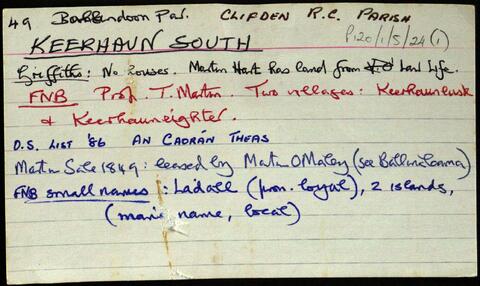 49 Ballindoon Par. CLIFDEN R.C. PARISH
P120/1/5/24(1)
KEERHAUN SOUTH
Griffiths: No houses. Martin Hart has land from Law Life.
FNB Prop. T. Martin. Two villages: Keerhaunlusk
& Keerhauneighter.
O.S. LIST '86 AN CAORÁN THEAS
Martin Sale 1849: leased by Martin O'Maley (see Ballinaleama)
FNB small names: Ladall (pron. loyal), 2 islands,
(marine name, local)